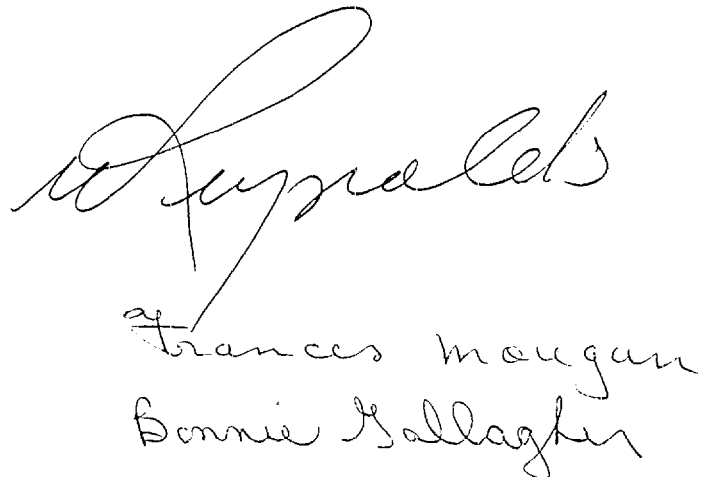 W Reynolds
Frances Mougan
Bonnie Gallagher